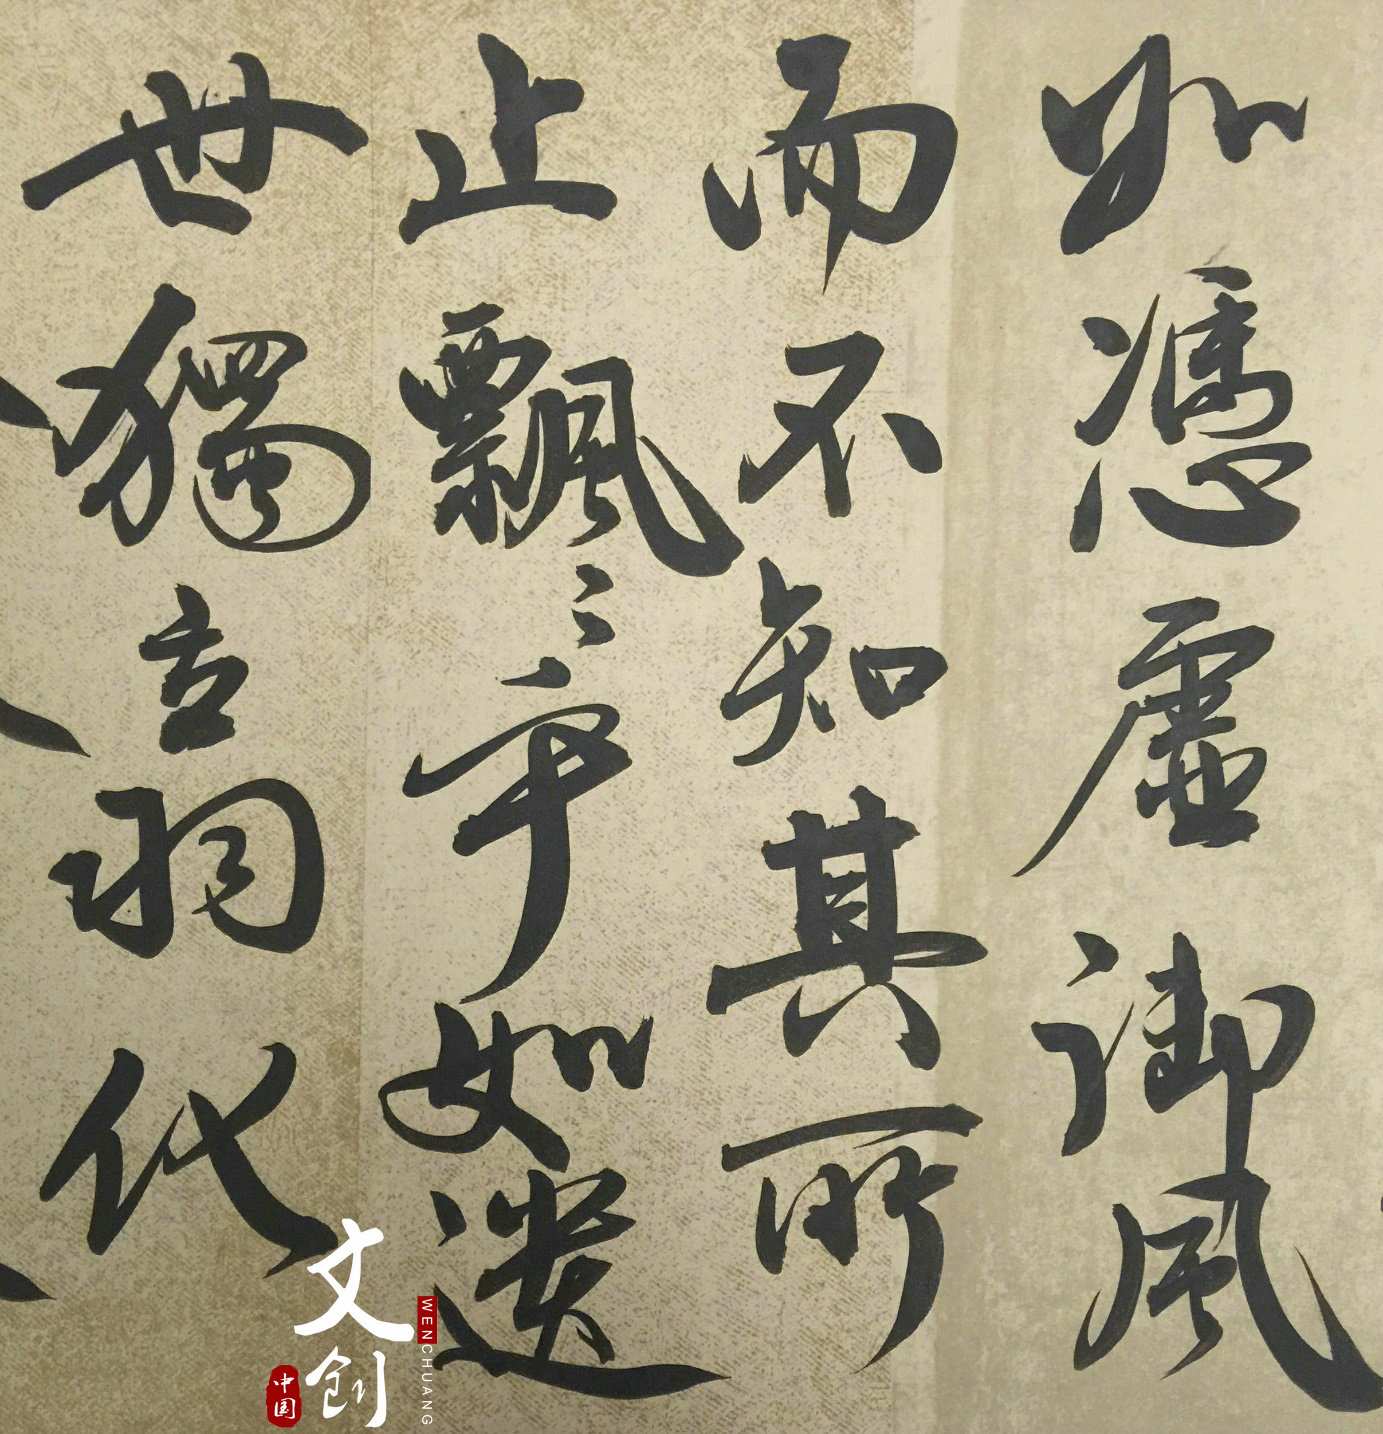 如憑虛御風
而不知其所
止飄〻乎如遺
世獨立羽化
文创
WENCHUANG
中国